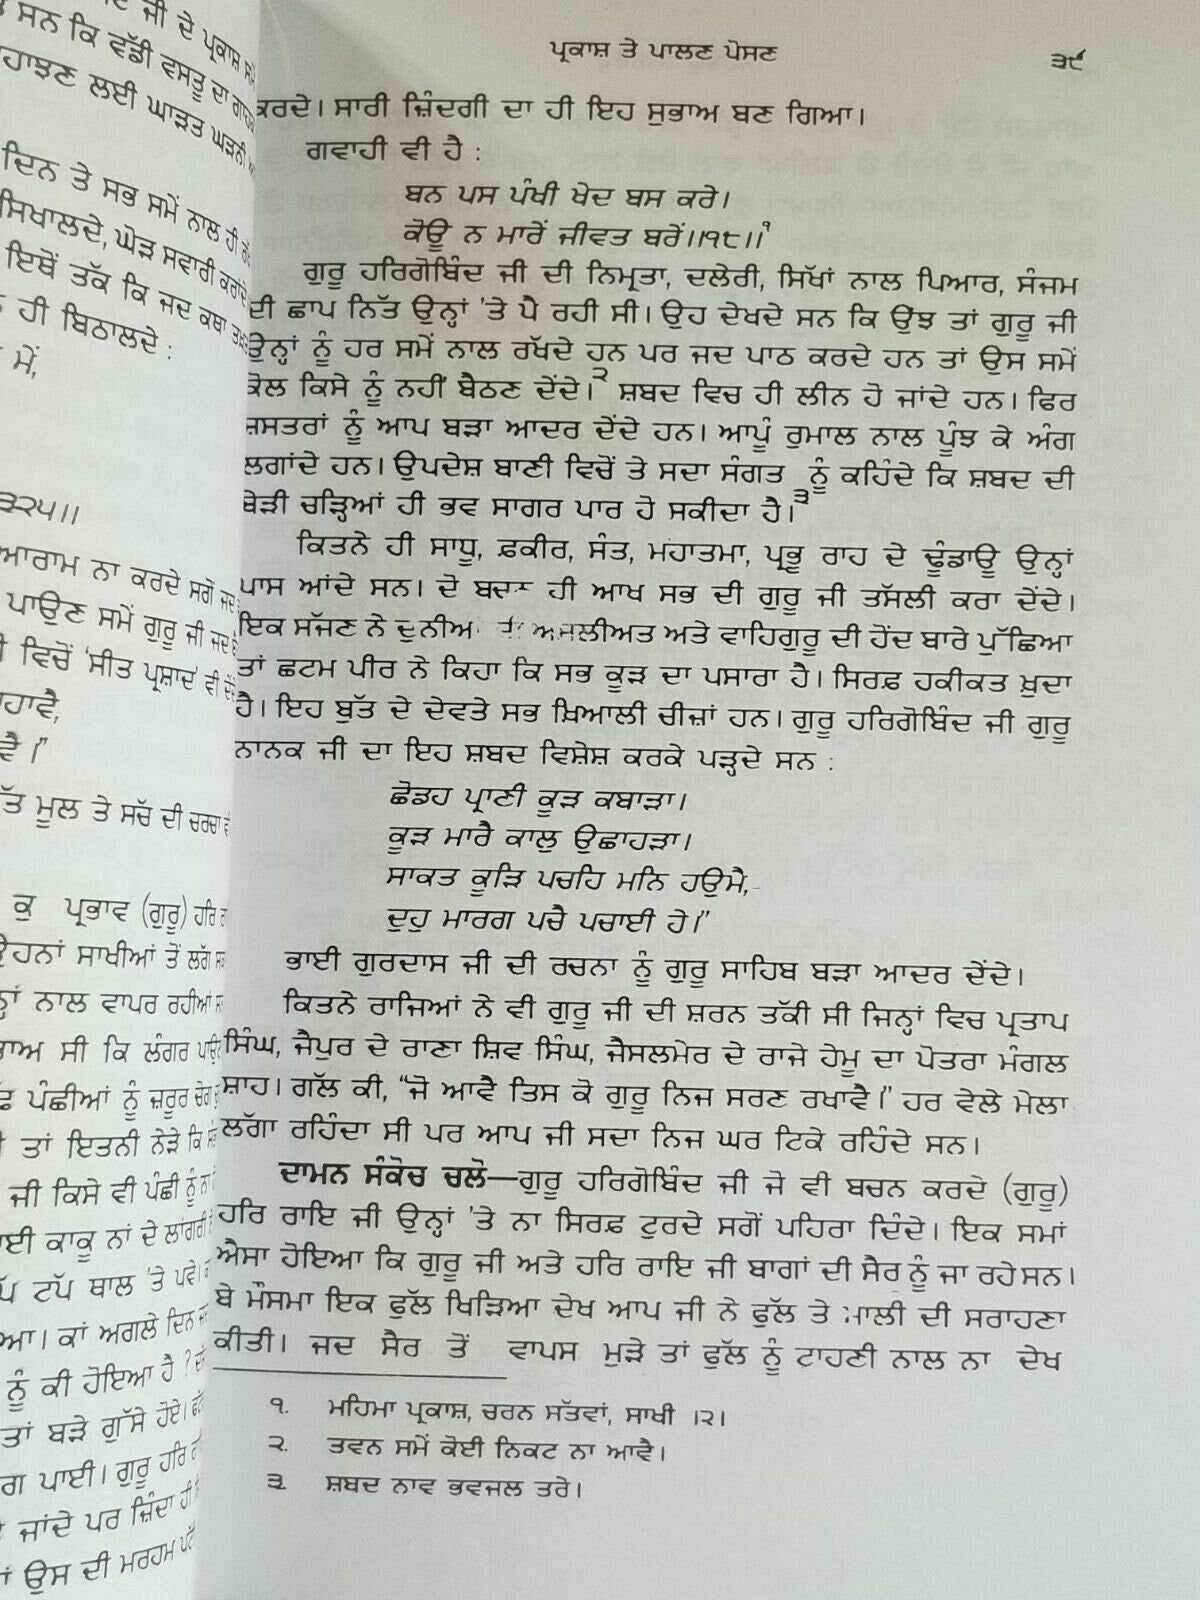 ਜੀ ਦੇ ਪ੍ਰਕਾਸ਼ ਸਮੇਂ
ਸਨ ਕਿ ਵੱਡੀ ਵਸਤੂ ਦਾ ਗਾਹਕ
ਲਈ ਘਾੜਤ ਘੜਨੀ
ਦਿਨ ਤੇ ਸਭ ਸਮੇਂ ਨਾਲ ਹੀ
ਸਿਖਾਲਦੇ, ਘੋੜ ਸਵਾਰੀ ਕਰਾਂਦੇ
ਇਥੋਂ ਤੱਕ ਕਿ ਜਦ ਕਥਾ
ਹੀ ਬਿਠਾਲਦੇ :
ਮੇਂ,
੩੨੫॥
ਆਰਾਮ ਨਾ ਕਰਦੇ ਸਗੋਂ ਜਦ
ਪਾਉਣ ਸਮੇਂ ਗੁਰੂ ਜੀ ਜਦ
ਵਿਚੋਂ 'ਸੀਤ ਪ੍ਰਸ਼ਾਦ' ਵੀ
ਮੂਲ ਤੇ ਸਚ ਦੀ ਚਰਚਾ
ਕੁ ਪ੍ਰਭਾਵ (ਗੁਰੂ) ਹਰਿ
ਸਾਖੀਆਂ ਤੋਂ ਲੱਗ
ਨਾਲ ਵਾਪਰ ਰਹੀਆਂ
ਸੀ ਕਿ ਲੰਗਰ
ਪੰਛੀਆਂ ਨੂੰ ਜ਼ਰੂਰ ਚੋਗ
ਤਾਂ ਇਤਨੀ ਨੇੜੇ ਕਿ
ਜੀ ਕਿਸੇ ਵੀ ਪੰਛੀ ਨੂੰ ਨਾ
ਕਾਕੂ ਨਾਂ ਦੇ ਲਾਂਗਰੀ
ਟੱਪ ਥਾਲ 'ਤੇ ਪਵੇ।
ਕਾਂ ਅਗਲੇ ਦਿਨ
ਨੂੰ ਕੀ ਹੋਇਆ ਹੈ ?
ਤਾਂ ਬੜੇ ਗੁੱਸੇ ਹੋਏ।
ਪਾਈ। ਗੁਰੂ ਹਰਿ
ਜਾਂਦੇ ਪਰ ਜ਼ਿੰਦਾ ਹੀ
ਉਸ ਦੀ ਮਰਹਮ
ਪ੍ਰਕਾਸ਼ ਤੇ ਪਾਲਣ ਪੋਸਣ ੩੯
ਕਰਦੇ। ਸਾਰੀ ਜ਼ਿੰਦਗੀ ਦਾ ਹੀ ਇਹ ਸੁਭਾਅ ਬਣ ਗਿਆ।
ਗਵਾਹੀ ਵੀ ਹੈ :
ਬਨ ਪਸ ਪੰਖੀ ਖੇਦ ਬਸ ਕਰੇ।
ਕੋਊ ਨ ਮਾਰੇਂ ਜੀਵਤ ਬਰੇਂ॥੧੮॥੧
ਗੁਰੂ ਹਰਿਗੋਬਿੰਦ ਜੀ ਦੀ ਨਿਮ੍ਰਤਾ, ਦਲੇਰੀ, ਸਿੱਖਾਂ ਨਾਲ ਪਿਆਰ, ਸੰਜਮ
ਦੀ ਛਾਪ ਨਿੱਤ ਉਨ੍ਹਾਂ 'ਤੇ ਪੈ ਰਹੀ ਸੀ। ਉਹ ਦੇਖਦੇ ਸਨ ਕਿ ਉਂਝ ਤਾਂ ਗੁਰੂ ਜੀ
ਉਨ੍ਹਾਂ ਨੂੰ ਹਰ ਸਮੇਂ ਨਾਲ ਰੱਖਦੇ ਹਨ ਪਰ ਜਦ ਪਾਠ ਕਰਦੇ ਹਨ ਤਾਂ ਉਸ ਸਮੇਂ
ਕੋਲ ਕਿਸੇ ਨੂੰ ਨਹੀਂ ਬੈਠਣ ਦੇਂਦੇ।੨ ਸ਼ਬਦ ਵਿਚ ਹੀ ਲੀਨ ਹੋ ਜਾਂਦੇ ਹਨ। ਫਿਰ
ਸ਼ਸਤਰਾਂ ਨੂੰ ਆਪ ਬੜਾ ਆਦਰ ਦੇਂਦੇ ਹਨ। ਆਪੂੰ ਰੁਮਾਲ ਨਾਲ ਪੂੰਝ ਕੇ ਅੰਗ
ਲਗਾਂਦੇ ਹਨ। ਉਪਦੇਸ਼ ਬਾਣੀ ਵਿਚੋਂ ਤੇ ਸਦਾ ਸੰਗਤ ਨੂੰ ਕਹਿੰਦੇ ਕਿ ਸ਼ਬਦ ਦੀ
ਬੇੜੀ ਚੜ੍ਹਿਆਂ ਹੀ ਭਵ ਸਾਗਰ ਪਾਰ ਹੋ ਸਕੀਦਾ ਹੈ।੩
ਕਿਤਨੇ ਹੀ ਸਾਧੂ, ਫ਼ਕੀਰ, ਸੰਤ, ਮਹਾਤਮਾ, ਪ੍ਰਭੂ ਰਾਹ ਦੇ ਢੂੰਡਾਊ ਉਨ੍ਹਾਂ
ਪਾਸ ਆਂਦੇ ਸਨ। ਦੋ ਬਚਨ ਹੀ ਆਖ ਸਭ ਦੀ ਗੁਰੂ ਜੀ ਤੱਸਲੀ ਕਰਾ ਦੇਂਦੇ।
ਇਕ ਸੱਜਣ ਨੇ ਦੁਨੀਆ ਦੀ ਅਸਲੀਅਤ ਅਤੇ ਵਾਹਿਗੁਰੂ ਦੀ ਹੋਂਦ ਬਾਰੇ ਪੁੱਛਿਆ
ਤਾਂ ਛਟਮ ਪੀਰ ਨੇ ਕਿਹਾ ਕਿ ਸਭ ਕੂੜ ਦਾ ਪਸਾਰਾ ਹੈ। ਸਿਰਫ਼ ਹਕੀਕਤ ਖ਼ੁਦਾ
ਹੈ। ਇਹ ਬੁੱਤ ਦੇ ਦੇਵਤੇ ਸਭ ਖ਼ਿਆਲੀ ਚੀਜ਼ਾਂ ਹਨ। ਗੁਰੂ ਹਰਿਗੋਬਿੰਦ ਜੀ ਗੁਰੂ
ਨਾਨਕ ਜੀ ਦਾ ਇਹ ਸ਼ਬਦ ਵਿਸ਼ੇਸ਼ ਕਰਕੇ ਪੜ੍ਹਦੇ ਸਨ :
ਛੋਡਹ ਪ੍ਰਾਣੀ ਕੂੜ ਕਬਾੜਾ।
ਕੂੜ ਮਾਰੈ ਕਾਲੁ ਉਛਾਹੜਾ।
ਸਾਕਤ ਕੂੜਿ ਪਚਹਿ ਮਨਿ ਹਉਮੈ,
ਦੁਹੁ ਮਾਰਗ ਪਚੈ ਪਚਾਈ ਹੇ।"
ਭਾਈ ਗੁਰਦਾਸ ਜੀ ਦੀ ਰਚਨਾ ਨੂੰ ਗੁਰੂ ਸਾਹਿਬ ਬੜਾ ਆਦਰ ਦੇਂਦੇ।
ਕਿਤਨੇ ਰਾਜਿਆਂ ਨੇ ਵੀ ਗੁਰੂ ਜੀ ਦੀ ਸ਼ਰਨ ਤੱਕੀ ਸੀ ਜਿਨ੍ਹਾਂ ਵਿਚ ਪ੍ਰਤਾਪ
ਸਿੰਘ, ਜੈਪੁਰ ਦੇ ਰਾਣਾ ਸ਼ਿਵ ਸਿੰਘ, ਜੈਸਲਮੇਰ ਦੇ ਰਾਜੇ ਹੇਮੂ ਦਾ ਪੋਤਰਾ ਮੰਗਲ
ਸ਼ਾਹ। ਗੱਲ ਕੀ, "ਜੋ ਆਵੈ ਤਿਸ ਕੋ ਗੁਰੂ ਨਿਜ ਸਰਣ ਰਖਾਵੈ।" ਹਰ ਵੇਲੇ ਮੇਲਾ
ਲੱਗਾ ਰਹਿੰਦਾ ਸੀ ਪਰ ਆਪ ਜੀ ਸਦਾ ਨਿਜ ਘਰ ਟਿਕੇ ਰਹਿੰਦੇ ਸਨ।
ਦਾਮਨ ਸੰਕੋਚ ਚਲੋ—ਗੁਰੂ ਹਰਿਗੋਬਿੰਦ ਜੀ ਜੋ ਵੀ ਬਚਨ ਕਰਦੇ (ਗੁਰੂ)
ਹਰਿ ਰਾਇ ਜੀ ਉਨ੍ਹਾਂ 'ਤੇ ਨਾ ਸਿਰਫ਼ ਟੁਰਦੇ ਸਗੋਂ ਪਹਿਰਾ ਦਿੰਦੇ। ਇਕ ਸਮਾਂ
ਐਸਾ ਹੋਇਆ ਕਿ ਗੁਰੂ ਜੀ ਅਤੇ ਹਰਿ ਰਾਇ ਜੀ ਬਾਗਾਂ ਦੀ ਸੈਰ ਨੂੰ ਜਾ ਰਹੇ ਸਨ।
ਬੇ ਮੌਸਮਾ ਇਕ ਫੁੱਲ ਖਿੜਿਆ ਦੇਖ ਆਪ ਜੀ ਨੇ ਫੁੱਲ ਤੇ ਮਾਲੀ ਦੀ ਸਰਾਹਣਾ
ਕੀਤੀ। ਜਦ ਸੈਰ ਤੋਂ ਵਾਪਸ ਮੁੜੇ ਤਾਂ ਫੁੱਲ ਨੂੰ ਟਾਹਣੀ ਨਾਲ ਨਾ ਦੇਖ
੧. ਮਹਿਮਾ ਪ੍ਰਕਾਸ਼, ਚਰਨ ਸੱਤਵਾਂ, ਸਾਖੀ ।੨।
੨. ਤਵਨ ਸਮੇਂ ਕੋਈ ਨਿਕਟ ਨਾ ਆਵੈ।
੩ ਸ਼ਬਦ ਨਾਵ ਭਵਜਲ ਤਰੇ।